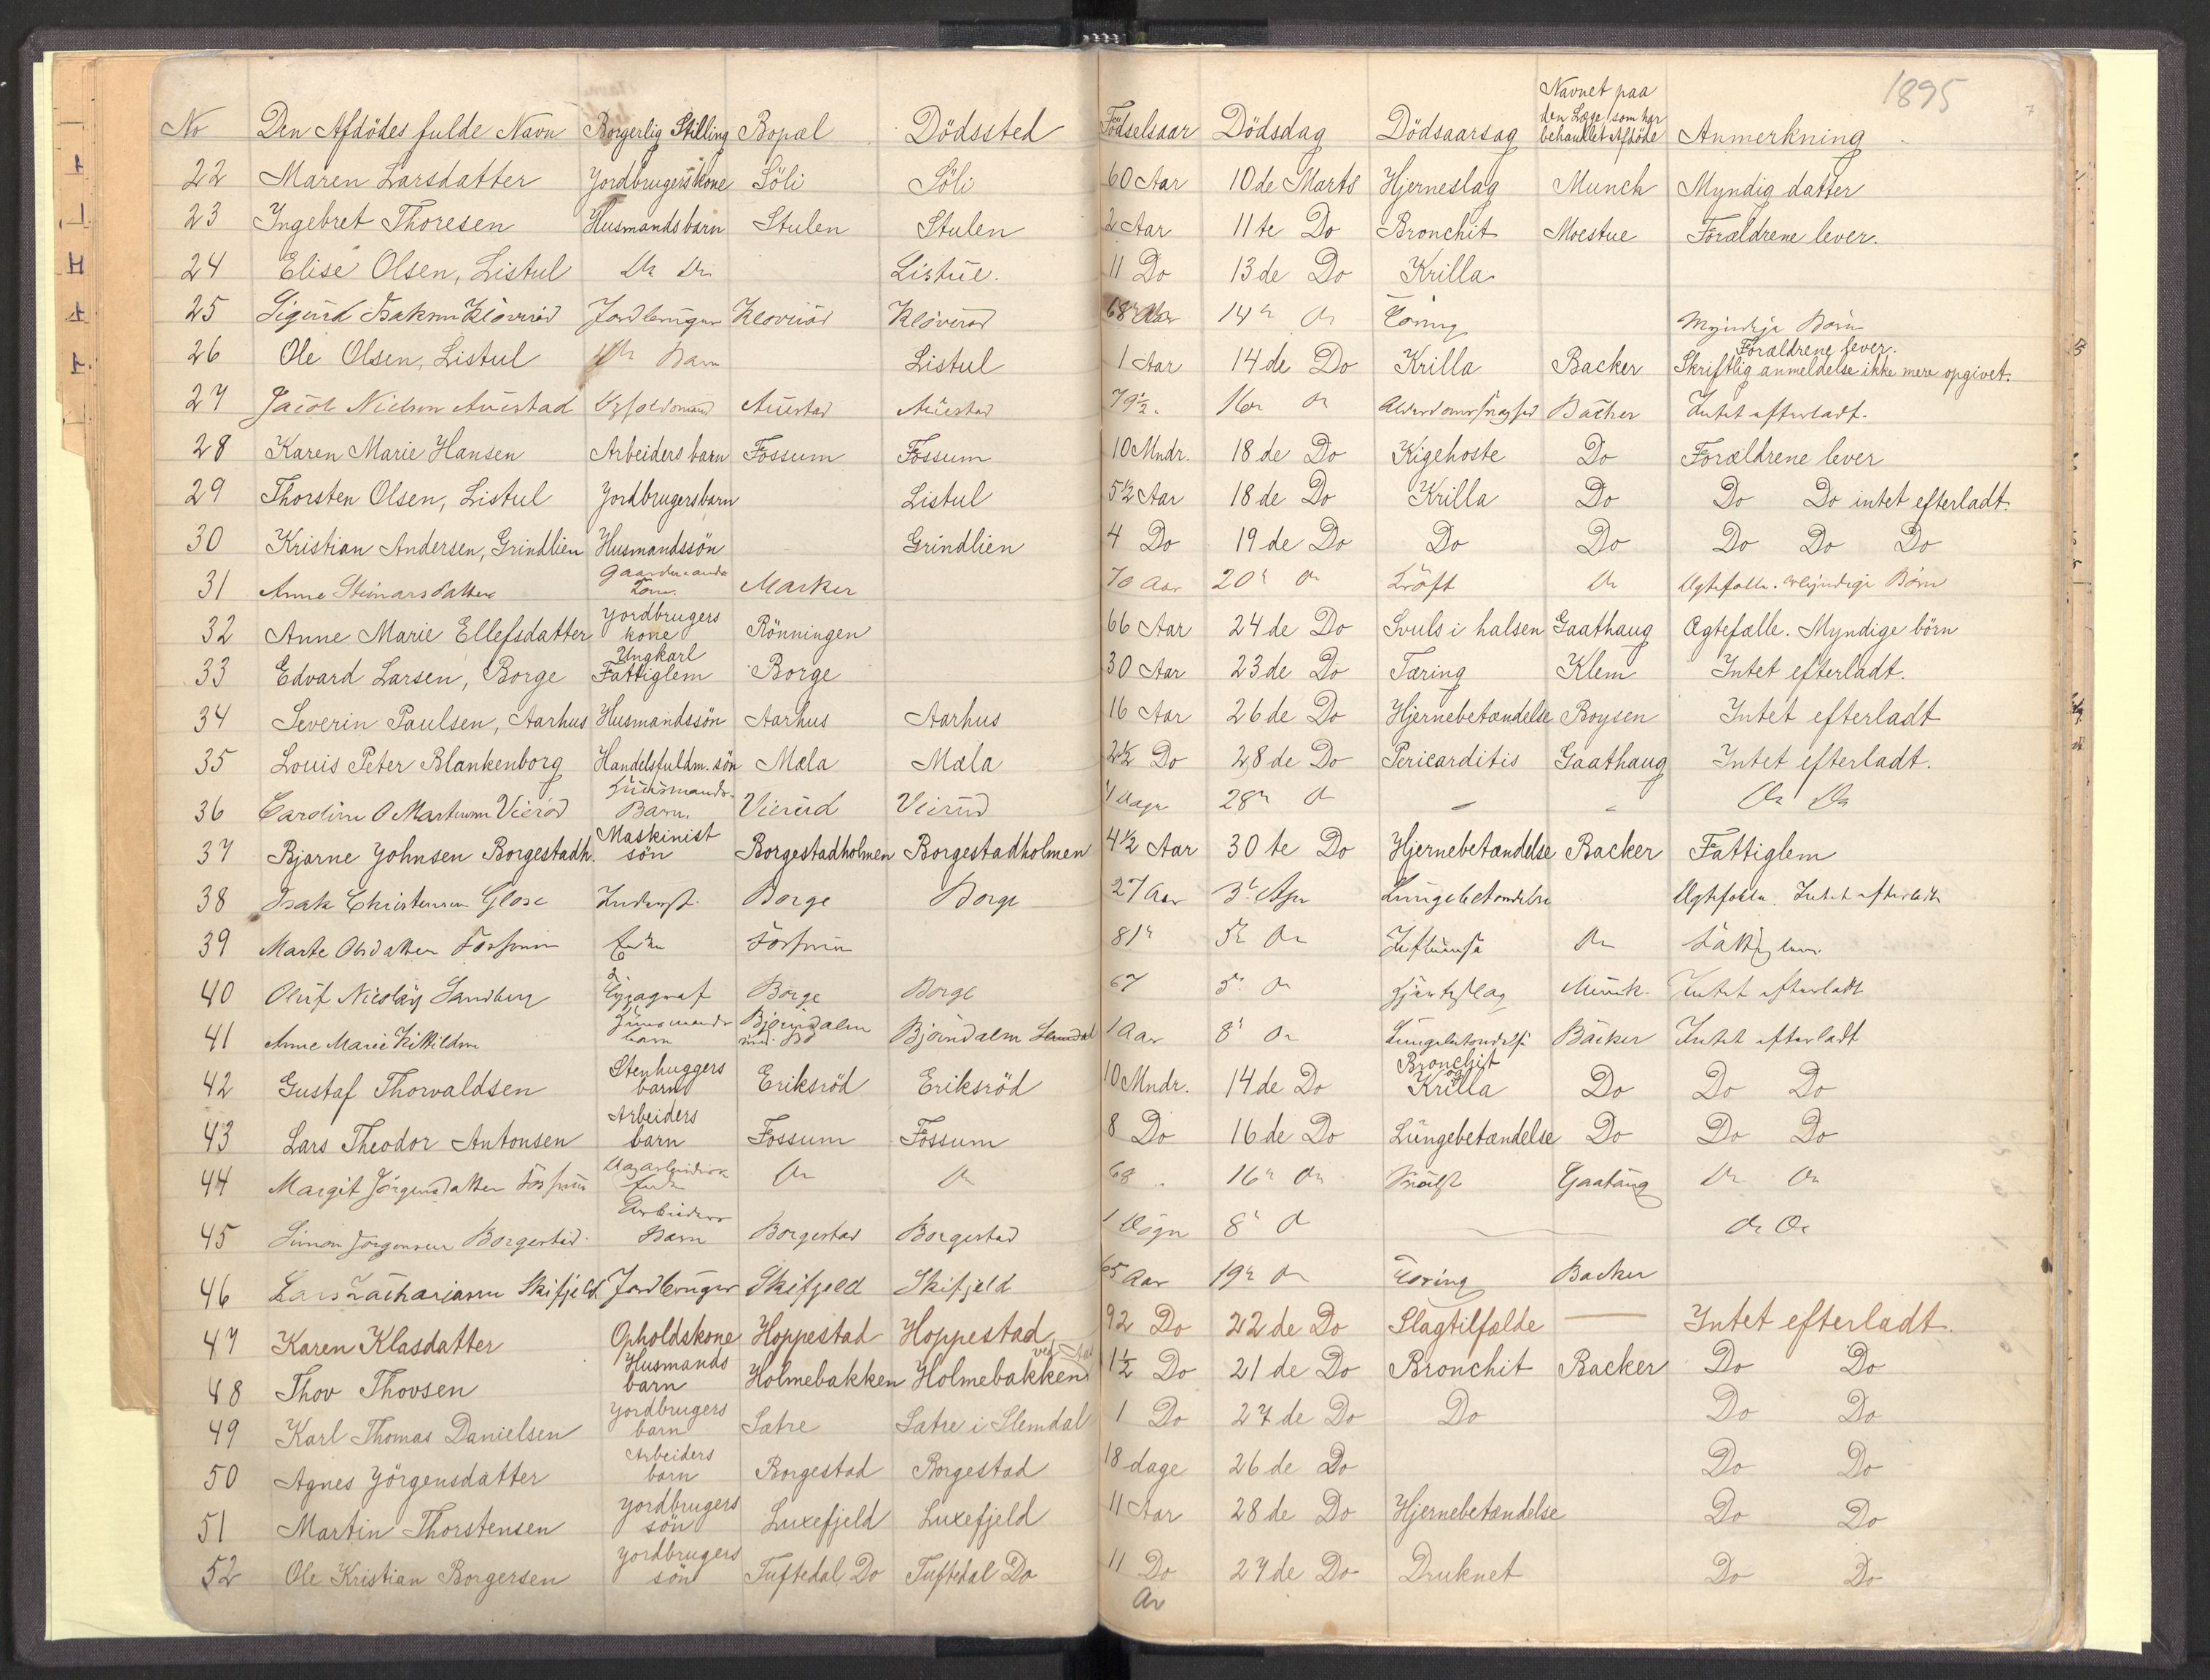 1895
No Den Afdödes fulde Navn Borgerlig Stilling Bopæl Dödssted Födselsaar Dödsdag Dödsaarsag Navnet paa den Læge som har behandlet Afdöde Anmerkning
22 Maren Larsdatter Jordbrugerskone Söli Söli 60 Aar 10de Marts Hjerneslag Munch Myndig datter
23 Ingebret Thoresen Husmandsbarn Stulen Stulen 2 Aar 11te Do Bronchit Moestue Forældrene lever.
24 Elise Olsen, Listul Do Do Listue. 11 Do 13de Do Krilla
25 Sigurd Isaksen Kloverød Jordbruger Kloverød Kloverød 68 Aar 14de Do Tæring Myndige Børn
26 Ole Olsen, Listul Do Barn Listul 1 Aar 14de Do Krilla Backer Forældrene lever. Skriftlig anmeldelse ikke mere opgivet.
27 Jacob Nielsen Auestad Auestad Auestad 79½ 16de Do Backer Intet efterladt.
28 Karen Marie Hansen Arbeidersbarn Fossum Fossum 10 Mndr. 18de Do Kigehoste Do Forældrene lever
29 Thorsten Olsen, Listul Jordbrugersbarn Listul 5½ Aar 18de Do Krilla Do Do Do intet efterladt.
30 Kristian Andersen, Grindlien Husmandssön Grindlien 4 Do 19de Do Do Do Do Do Do
31 Anne Steinarsdatter Gaardmands Kone Marker 70 Aar 20de Do Kræft Do Ægtefælle. Myndige Børn
32 Anne Marie Ellefsdatter Jordbrugers kone Rönningen 66 Aar 24de Do Svuls i halsen Gaathaug Ægtefælle. Myndige börn
33 Edvard Larsen, Borge Ungkarl Fattiglem Borge 30 Aar 23de Do Tæring Klem Intet efterladt.
34 Severin Paulsen, Aarhus Husmandssön Aarhus Aarhus 16 Aar 26de Do Hjernebetændelse Boysen Intet efterladt
35 Louis Peter Blankenborg Handelsfuldm. sön Mæla Mæla 2½ Do 28de Do Pericarditis Gaathaug Intet efterladt.
36 Husmands- Barn. Vierud Vierud Dage 28de Do - - Do Do
37 Bjarne Johnsen Borgestadh. Maskinist sön Borgestadholmen Borgestadholmen 4½ Aar 30te Do Hjernebetændelse Backer Fattiglem
38 Isak Christensen Glose Inderst. Borge Borge 27 Aar 3de Apr Lungebetændelse Ægtefælle. Intet efterladt
39 Marte Olsdatter Fossum Enke Fossum 81 5te Do Influensa Do Fattiglem
40 Oluf Nicolay Sandberg Borge Borge 67 5te Do Hjerteslag Munk. Intet efterladt
41 Anne Marie Kittilsen Husmands barn Bjørndalen Bjørndalen Slemdal 1 Aar 8de Do Lungebetændelse Backer Intet efterladt
42 Gustaf Thorvaldsen Stenhuggers barn Eriksröd Eriksröd 10 Mndr. 14de Do Bronchit og Krilla Do Do Do
43 Lars Theodor Antonsen Arbeiders barn Fossum Fossum 8 Do 16de Do Lungebetændelse Do Do Do
44 Margit Jørgensdatter Fossum Dagarbeiders Enke Do Do 68 16de Do Gaataug Do Do
45 Simon Jørgensen Borgestad Arbeiders Barn Borgestad Borgestad 1 Døgn 8de Do Do Do
46 Lars Zachariasen Skifjeld Jordbruger Skifjeld Skifjeld 65 Aar 19de Do Tæring Backer
47 Karen Klasdatter Opholdskone Hoppestad Hoppestad 92 Do 22de Do Slagtilfælde — Intet efterladt.
48 Thov Thovsen Husmands barn Holmebakken Holmebakken 1½ Do 21de Do Bronchit Backer Do Do
49 Karl Thomas Danielsen Jordbrugers barn Sætre Sætre i Slemdal 1 Do 27de Do Do Do Do
50 Agnes Jörgensdatter Arbeiders barn Borgestad Borgestad 18 dage 26de Do Do Do
51 Martin Thorstensen Jordbrugers sön Luxefjeld Luxefjeld 11 Aar 28de Do Hjernebetændelse Do Do
52 Ole Kristian Borgersen Jordbrugers sön Tuftedal Do Tuftedal Do 11 Do 27de Do Druknet Do Do
Ar